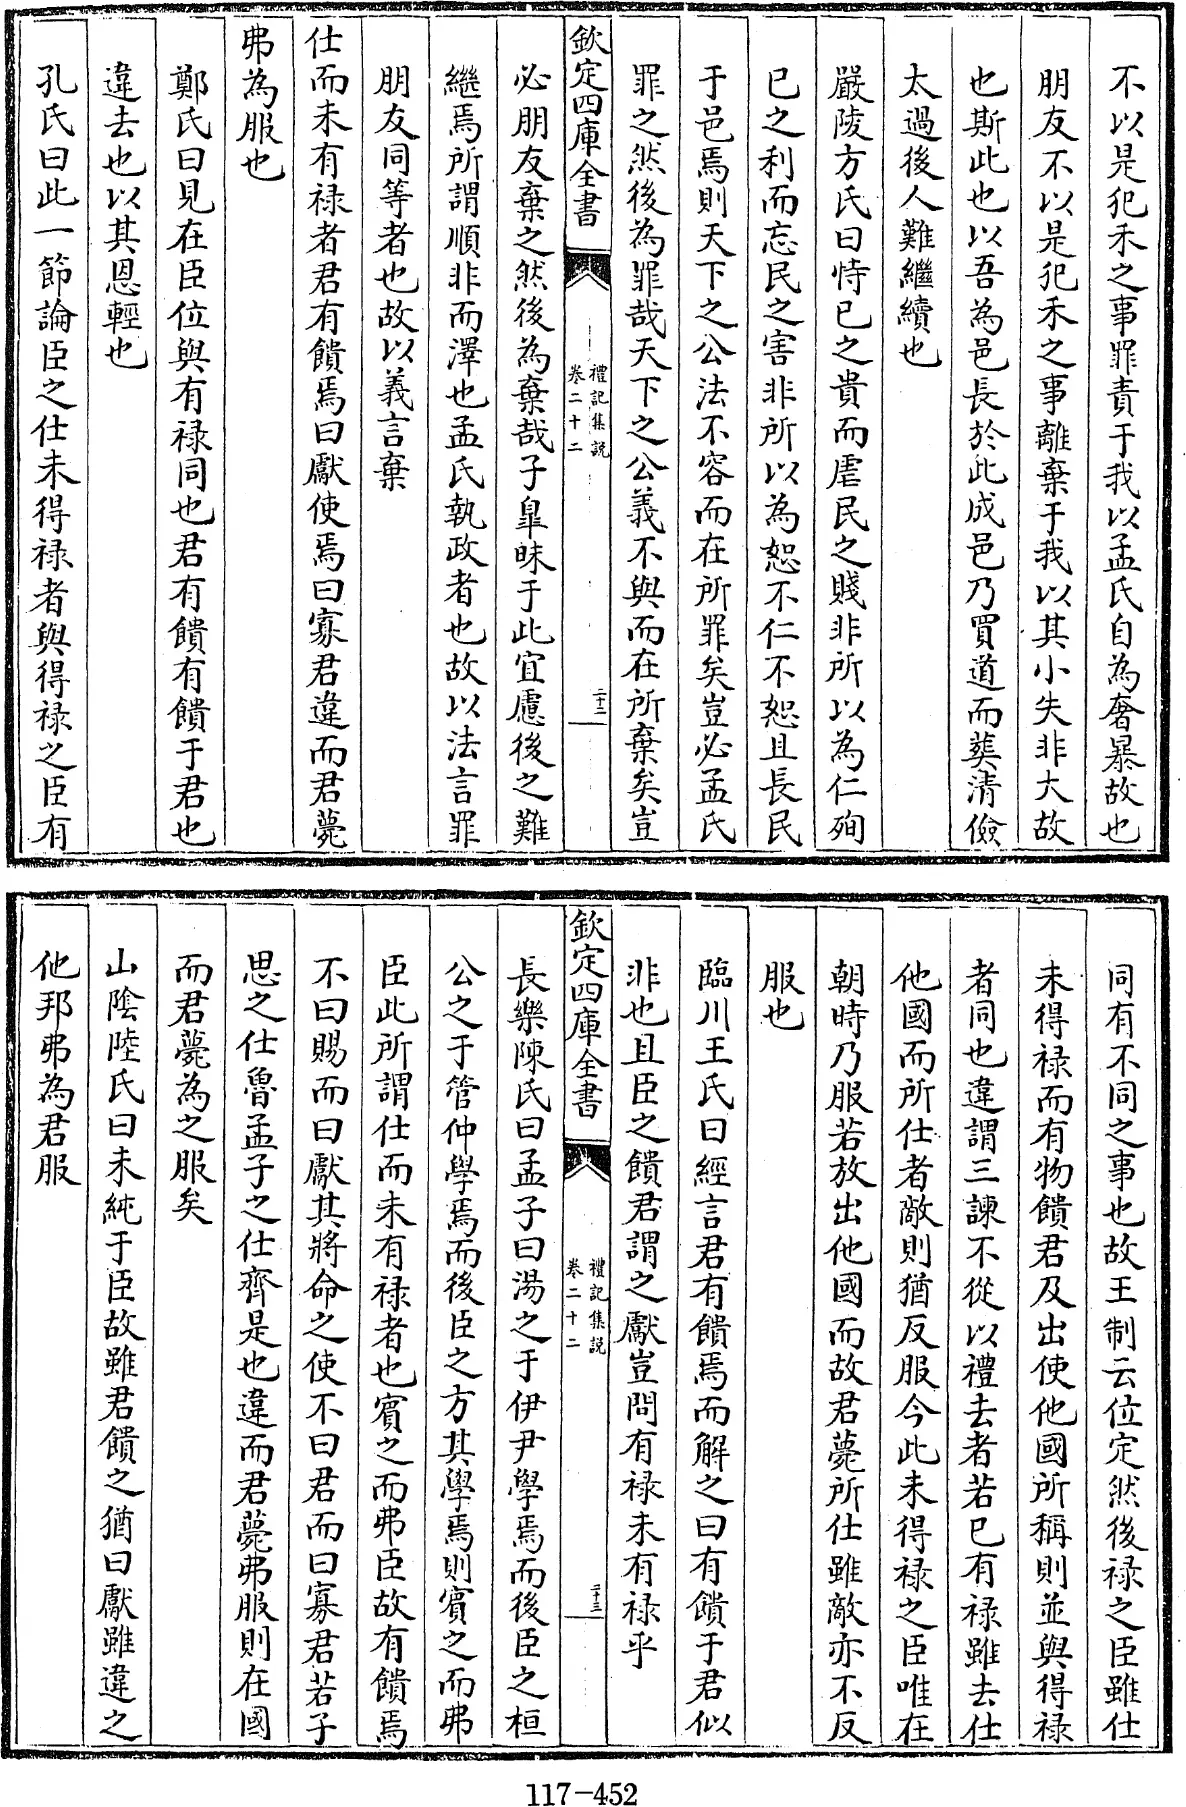 不以是犯禾之事罪責于我以孟氏自為奢暴故也
朋友不以是犯禾之事離棄于我以其小失非大故
也斯此也以吾為邑長於此成邑乃買道而葬清儉
太過後人難繼續也
嚴陵方氏曰恃已之貴而虐民之賤非所以為仁殉
已之利而忘民之害非所以為恕不仁不恕且長民
于邑焉則天下之公法不容而在所罪矣豈必孟氏
罪之然後為罪哉天下之公義不與而在所棄矣豈
欽定四庫全書
禮記集說
卷二十二
二十二
必朋友棄之然後為棄哉子臯昧于此宜慮後之難
繼焉所謂順非而澤也孟氏執政者也故以法言罪
朋友同等者也故以義言棄
仕而未有禄者君有饋焉曰獻使焉曰寡君違而君薨
弗為服也
鄭氏曰見在臣位與有禄同也君有饋有饋于君也
違去也以其恩輕也
孔氏曰此一節論臣之仕未得禄者與得禄之臣有
同有不同之事也故王制云位定然後禄之臣雖仕
未得禄而有物饋君及出使他國所稱則並與得禄
者同也違謂三諫不從以禮去者若已有禄雖去仕
他國而所仕者敵則猶反服今此未得禄之臣唯在
朝時乃服若放出他國而故君薨所仕雖敵亦不反
服也
臨川王氏曰經言君有饋焉而解之曰有饋于君似
非也且臣之饋君謂之獻豈問有禄未有禄乎
欽定四庫全書
禮記集說
卷二十二
二十三
長樂陳氏曰孟子曰湯之于伊尹學焉而後臣之桓
公之于管仲學焉而後臣之方其學焉則賓之而弗
臣此所謂仕而未有禄者也賓之而弗臣故有饋焉
不曰賜而曰獻其將命之使不曰君而曰寡君若子
思之仕魯孟子之仕齊是也違而君薨弗服則在國
而君薨為之服矣
山隂陸氏曰未純于臣故雖君饋之猶曰獻雖違之
他邦弗為君服
117-452